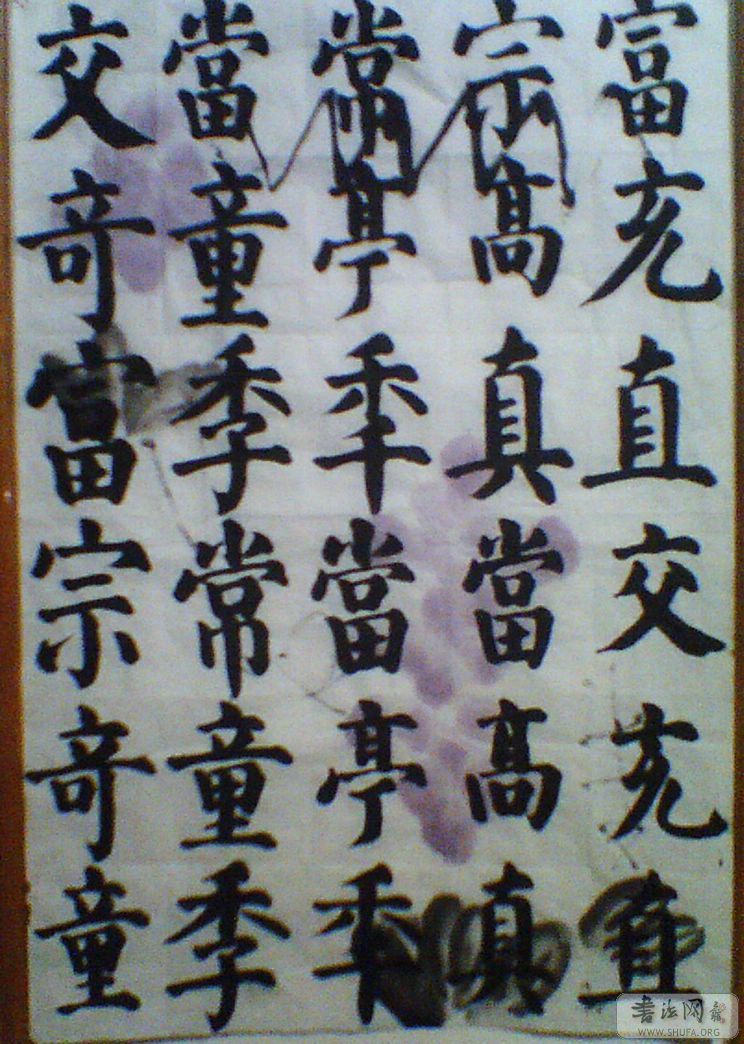 富充直交充直
宗髙真當髙真
常亭秊當亭秊
當童季常童季
交竒富宗竒童
書法网
WWW.SHUFA.ORG